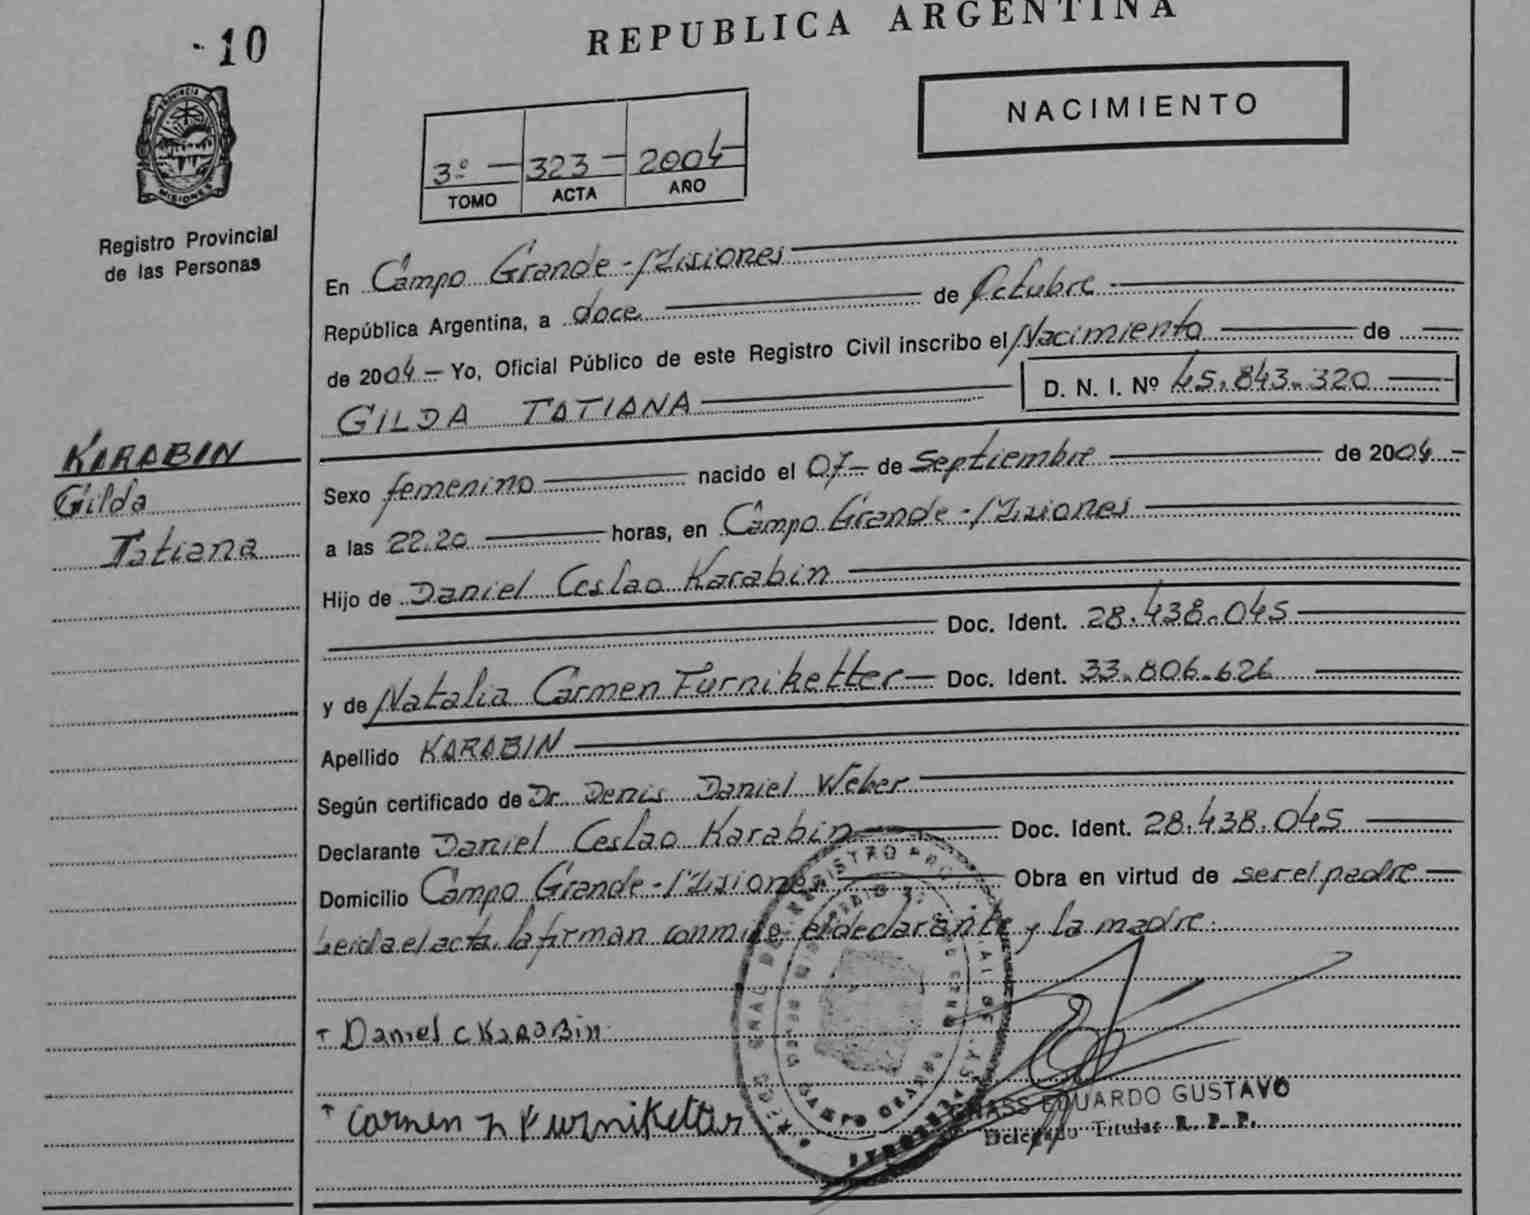 -10
REPUBLICA ARGENTINA
NACIMIENTO
3º 323 2004
TOMO ACTA AÑO
PROVINCIA D
MISIONES
Registro Provincial
de las Personas
En Campo Grande - Misiones
República Argentina, a doce de Octubre
de 2004 Yo, Oficial Público de este Registro Civil inscribo el Nacimiento de
GILDA TATIANA D. N. I. Nº 45.843.320
KARABIN
Gilda
Tatiana
Sexo femenino nacido el 07 de Septiembre de 2004
a las 22.20 horas, en Campo Grande - Misiones
Hijo de Daniel Ceslao Karabin
Doc. Ident. 28.438.045
y de Natalia Carmen Furniketter Doc. Ident. 33.806.626
Apellido KARABIN
Según certificado de Dr. Denis Daniel Weber
Declarante Daniel Ceslao Karabin Doc. Ident. 28.438.045
Domicilio Campo Grande - Misiones Obra en virtud de ser el padre
Leida el acta la firman conmigo el declarante y la madre.
Daniel C KARABIN
Carmen n Furniketter
EDUARDO GUSTAVO
Delegado Titular R. P. P.
CAMPO GRANDE